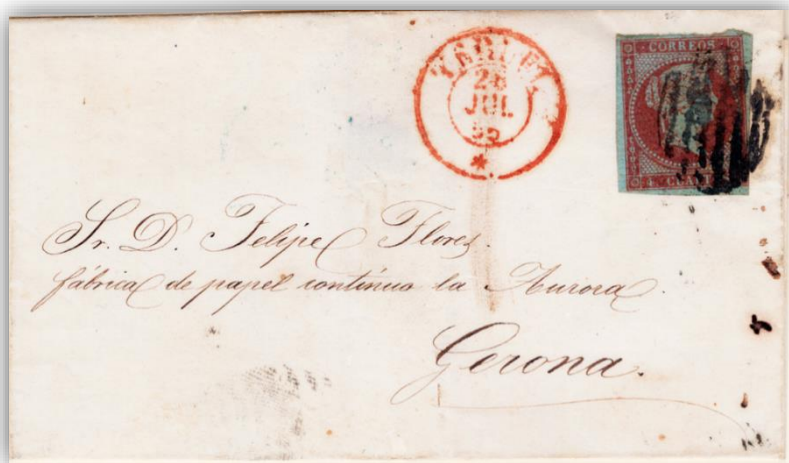 CORREOS
JUL
Sr. D. Felipe Flores.
fábrica de papel contínuo la Aurora
Gerona.